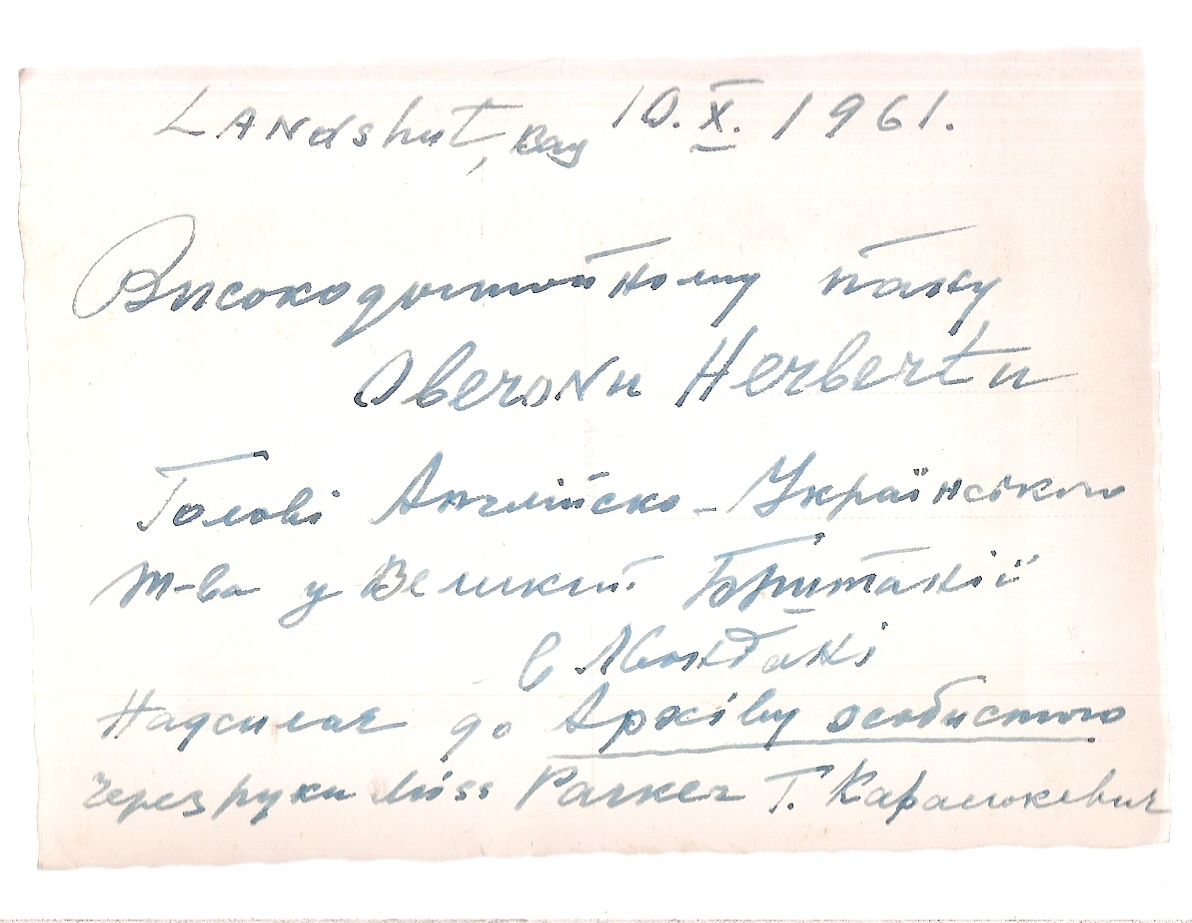 Landshut, Bay 10. X. 1961.
Високодостойному пану
Oberonu Herbertu
Голові Англійско-Українського
Т-ва у Великій Британії
в Лондоні
Надсилає до Архіву особистого
через руки Miss Parker Т.